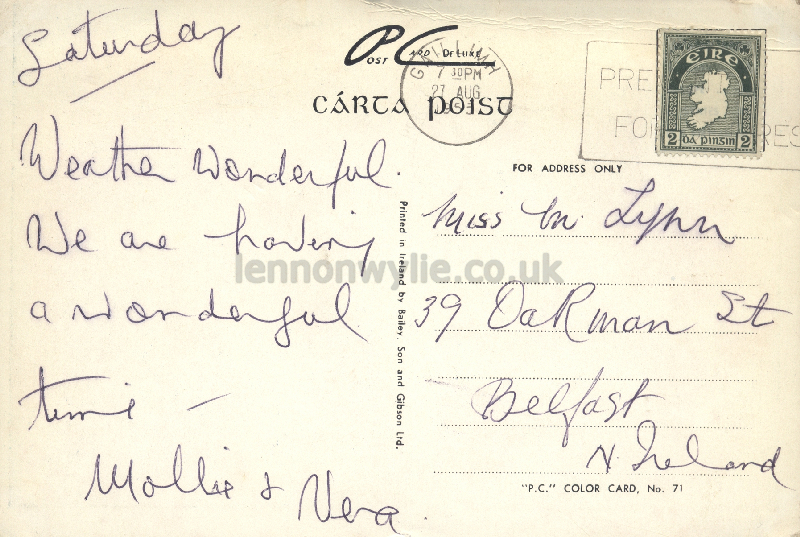 Saturday
Weather Wonderful.
We are having
a wonderful
time -
Mollie & Vera.
POST CARD DE LUXE
CÁRTA POIST
GAILLIMH
7 30PM
27 AUG
EIRE
2 DA PINSIN 2
PRE
FO
RES
FOR ADDRESS ONLY
Miss M. Lynn
39 Oakman St
Belfast
N. Ireland
Printed in Ireland by Bailey, Son and Gibson Ltd.
"P.C." COLOR CARD, No. 71
lennonwylie.co.uk